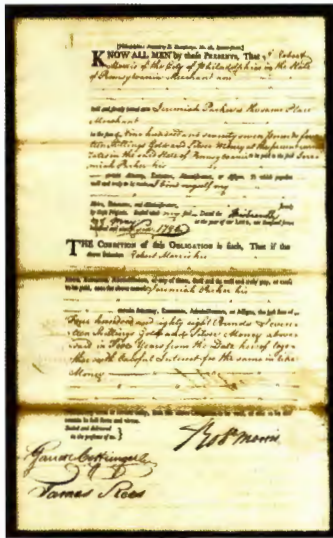 KNOW ALL MEN by these PRESENTS, That I Robert
Morris of the City of Philadelphia in the State
of Pennsylvania Merchant am
held and firmly bound unto Jeremiah Parker of the same Place
Merchant
in the Sum of Nine hundred and seventy seven Pounds
Shillings Gold and Silver Money at the present current
rates in the said State of Pennsylvania to be paid to the said Jere
miah Parker his
certain Attorney, Executors, Administrators, or Assigns: To which payment
well and truly to be made, I bind myself my
Heirs, Executors, and Administrators, firmly
by these Presents. Sealed with my Seal. Dated the
day of May
THE CONDITION of this OBLIGATION is such, That if the
above bounden Robert Morris his
Heirs, Executors, Administrators, or any of them, shall and do well and truly pay, or cause
to be paid, unto the above named Jeremiah Parker his
certain Attorney, Executors, Administrators, or Assigns, the just Sum of
Four hundred and eighty eight Pounds
Shillings Gold and Silver Money above
said in Two Years from the Date hereof toge
ther with Lawful Interest for the same in like
Money
remain in full force and virtue.
Sealed and delivered
in the presence of us
Robt Morris
James Rees